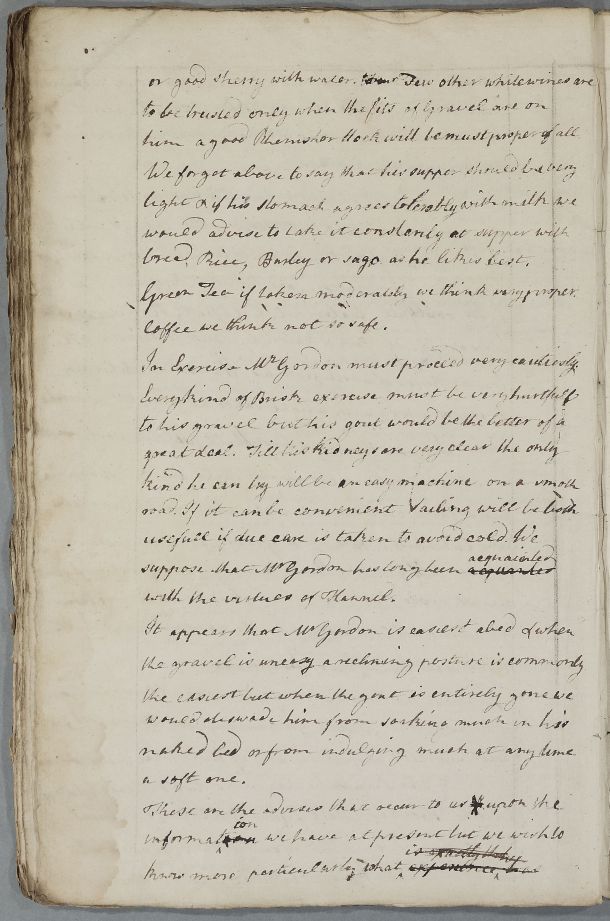 or good sherry with water. few other white wines are
to be trusted only when the fits of Gravel are on
him a good Rhenish or Hock will be most proper of all.
We forgot above to say that his supper should be very
light & if his stomach agrees tolerably with milk we
would advise to take it constantly at supper with
bread, Rice, Barley or sago as he likes best.
Green Tea if taken moderately we think very proper.
Coffee we think not so safe.
In Exercise Mr Gordon must proceed very cautiously.
Every kind of Brisk exercise must be very hurtfull
to his gravel but his gout would be the better of a
great deal. Till his Kidneys are very clear the only
kind he can try will be an easy machine on a smoth
road. If it can be convenient Sailing will be both
usefull if due care is taken to avoid cold. We
suppose that Mr Gordon has long been acquainted
with the virtues of Flannel.
It appears that Mr Gordon is easiest abed & when
the gravel is uneasy a reclining posture is commonly
the easiest but when the gout is entirely gone we
would disswade him from soaking much in his
naked bed or from indulging much at any time
a soft one.
These are the advices that occur to us upon the
information we have at present but we wish to
know more particularly what